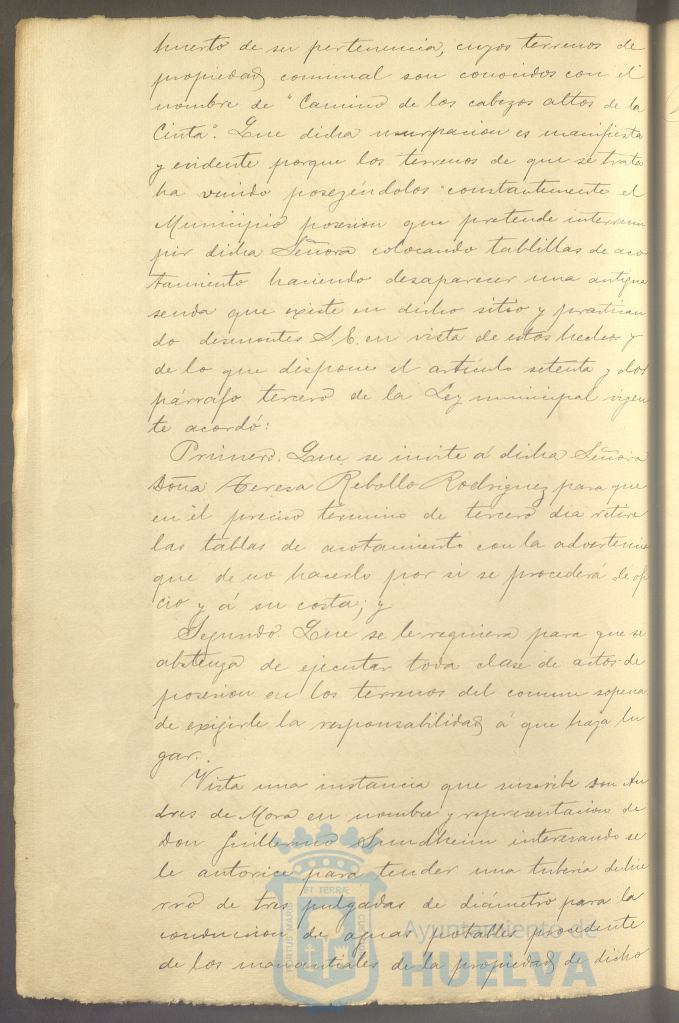 huerto de su pertenencia, cuyos terrenos de
propiedad comunal son conocidos con el
nombre de "Camino de los cabezos altos de la
Cinta". Que dicha usurpacion es manifiesta
y evidente porque los terrenos de que se trata
ha venido poseyéndolos constantemente el
Municipio posesion que pretende interrum
pir dicha Señora colocando tablillas de aco
tamiento haciendo desaparecer una antigua
senda que existe en dicho sitio y practican
do desmontes S.E. en vista de estos hechos y
de lo que dispone el artículo setenta y dos
párrafo tercero de la Ley municipal vigen
te acordó:
Primero. Que se invite á dicha Señora
Doña Teresa Rebollo Rodriguez para que
en el preciso término de tercero dia retire
las tablas de acotamiento con la advertencia
que de no hacerlo por si se procederá de ofi
cio y á su costa; y
Segundo. Que se le requiera para que se
abstenga de ejecutar toda clase de actos de
posesion en los terrenos del comun so pena
de exijirle la responsabilidad á que haya lu
gar.
Vista una instancia que suscribe Don An
dres de Mora en nombre y representacion de
Don Guillermo Sundheim interesando se
le autorice para tender una tubería de hie
rro de tres pulgadas de diámetro para la
conduccion de aguas potables procedente
de los manantiales de la propiedad de dicho
ET TERRÆ
PORTUS MARIS
CUSTODIA
Ayuntamiento de
HUELVA